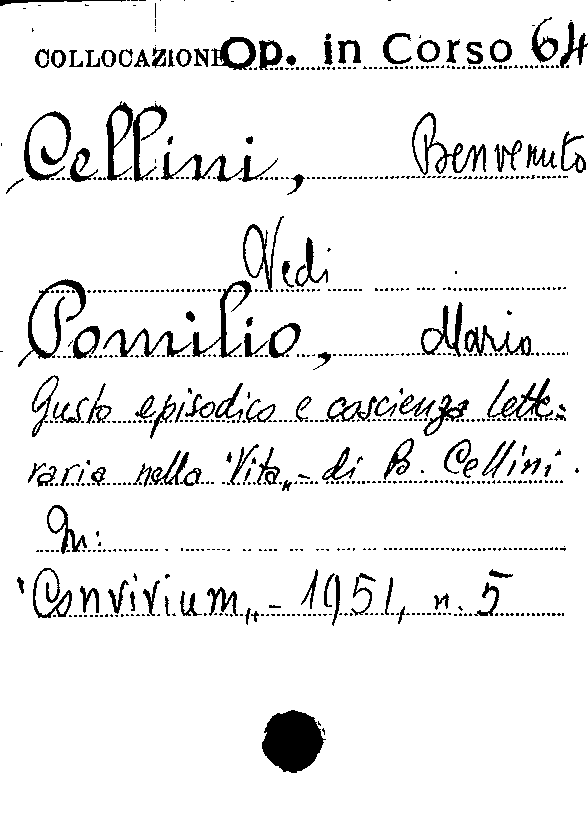 COLLOCAZIONE Op. in Corso 64
Cellini, Benvenuto
Vedi
Pomilio, Mario
Gusto episodico e coscienza lette=
raria nella "Vita„ - di B. Cellini.
In:
"Convivium„ - 1951, n. 5